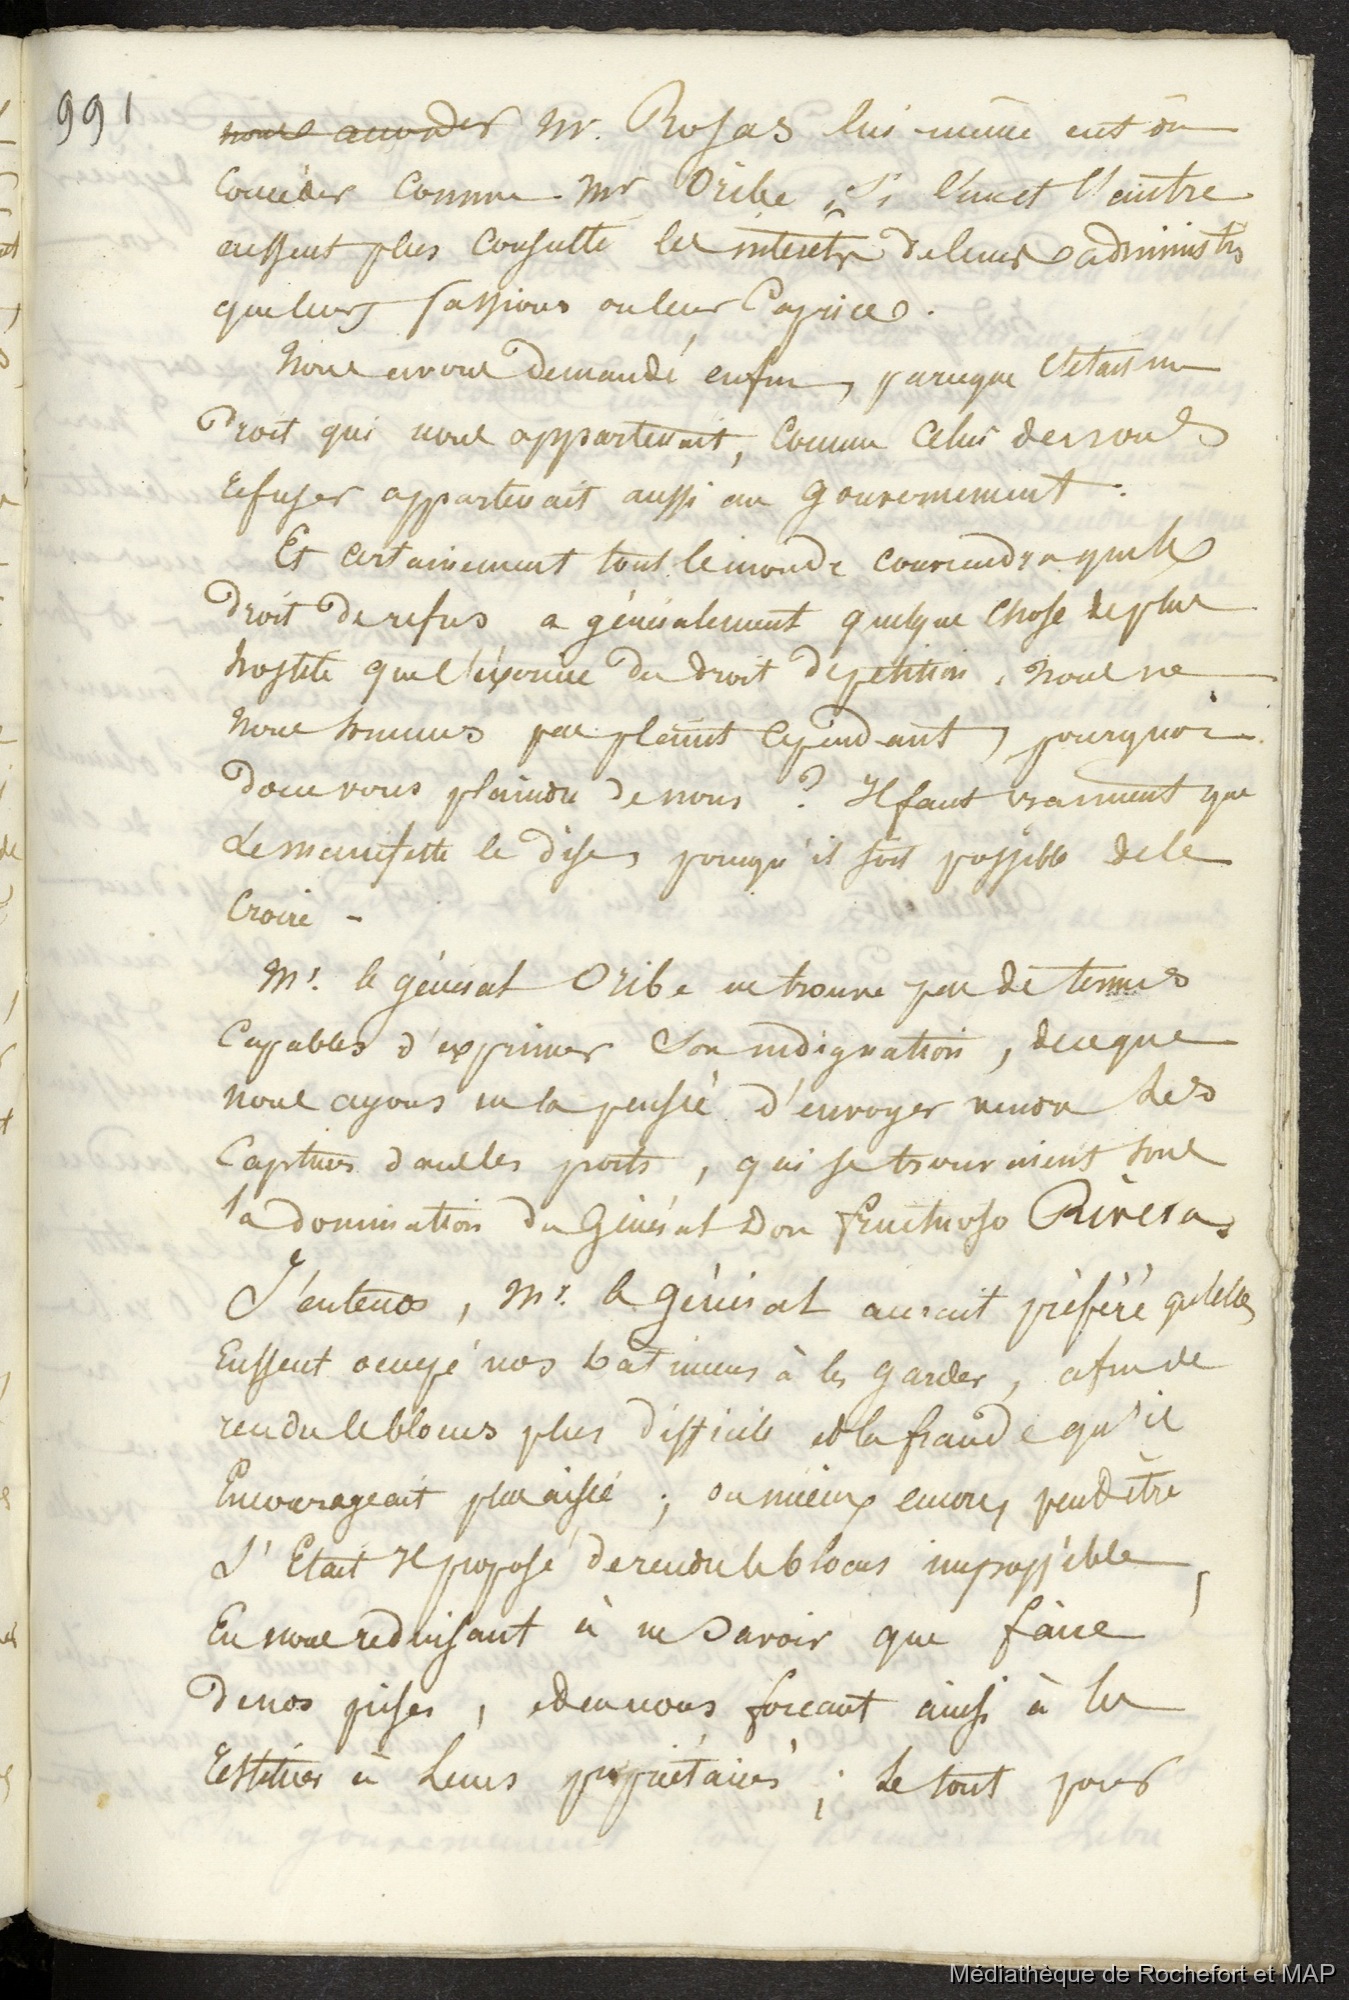 991
nous accorder Mr. Rosas lui-même eut dû
Concéder comme Mr Oribe, Si l'un et l'autre
eussent plus consulté les intérêts de leurs administrés
que leurs passions ou leur Caprice.
Nous avons demandé enfin, parceque c'était un
Droit qui nous appartenait, comme celui de nous
refuser appartenait aussi au gouvernement.
Et certainement tout le monde conviendra que le
droit de refus a généralement quelque chose de plus
hostile que l'exercice du droit de pétition. Nous ne
nous sommes pas plaint cependant, pourquoi
donc vous plaindre de nous ? Il faut vraiment que
Le manifeste le dise, pour qu'il soit possible de le
Croire -
Mr. le général Oribe ne trouve pas de termes
Capables d'exprimer Son indignation, de ce que
nous ayons eu la pensée d'envoyer vendre les
Captures dans les ports, qui se trouvaient sous
la domination du Général Don fructuoso Rivera,
J'entends, Mr. le Général aurait préféré qu'elles
Eussent occupé nos bâtimens à les garder, afin de
rendre le blocus plus difficile et la fraude qu'il
Encourageait plus aisée ; ou mieux encore, peut être
S'Etait Il proposé de rendre le blocus impossible,
En nous réduisant à ne Savoir que faire
De nos prises, et en nous forcant ainsi à les
restituer à Leurs propriétaires ; Le tout pour
Médiathèque de Rochefort et MAP